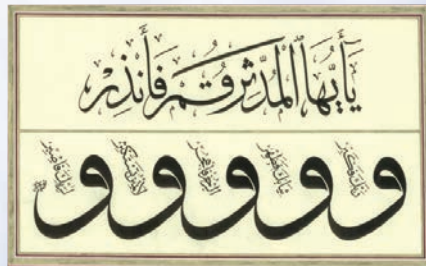 يَأَيُّهَا الْمُدَّثِّرُ قُمْ فَأَنْذِرْ
و ربك فكبر و ثيابك فطهر و الرجز فاهجر و لا تمنن تستكثر و لربك فاصبر